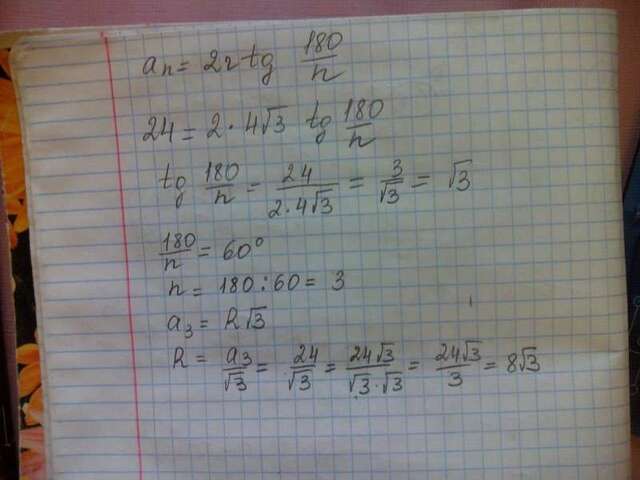 aₙ = 2r tg 180/n
24 = 2 · 4√3 tg 180/n
tg 180/n = 24/(2·4√3) = 3/√3 = √3
180/n = 60°
n = 180 : 60 = 3
a₃ = R√3
R = a₃/√3 = 24/√3 = 24√3/(√3·√3) = 24√3/3 = 8√3